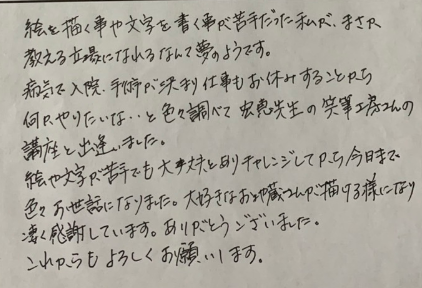 絵を描く事や文字を書く事が苦手だった私が、まさか
教える立場になれるなんて夢のようです。
病気で入院、手術が決まり仕事もお休みすることから
何かやりたいな‥と色々調べて 宏恵先生の笑筆工房さんの
講座と出逢いました。
絵や文字が苦手でも大丈夫とありチャレンジしてから今日まで
色々お世話になりました。大好きなお地蔵さんが描ける様になり
凄く感謝しています。ありがとうございました。
これからもよろしくお願いします。